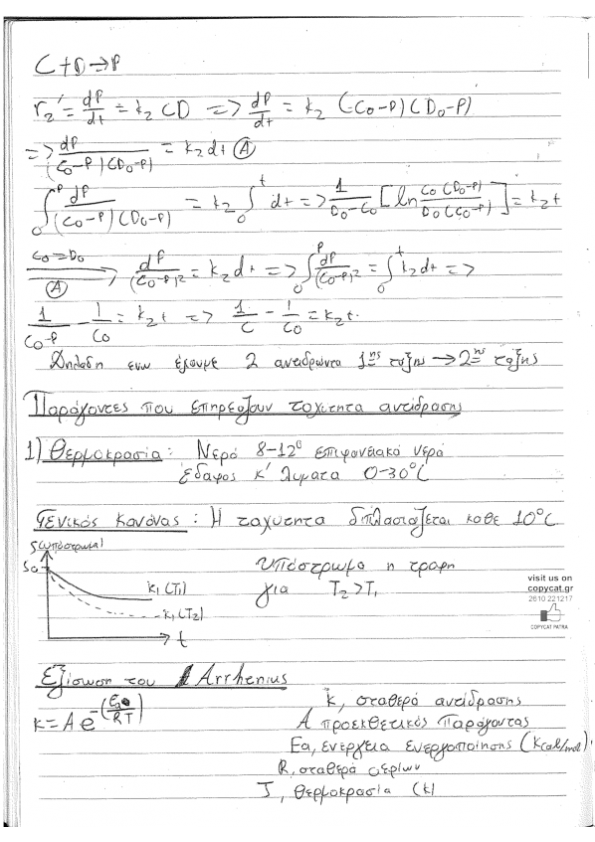 C + D → P
r₂' = dP/dt = k₂ CD => dP/dt = k₂ (C₀-P)(D₀-P)
=> dP/(C₀-P)(D₀-P) = k₂dt Ⓐ
∫₀ᴾ dP/(C₀-P)(D₀-P) = k₂ ∫₀ᵗ dt => 1/(D₀-C₀) [ln C₀(D₀-P)/D₀(C₀-P)] = k₂t
C₀=D₀ Ⓐ → dP/(C₀-P)² = k₂dt => ∫₀ᴾ dP/(C₀-P)² = ∫₀ᵗ k₂dt =>
1/(C₀-P) - 1/C₀ = k₂t => 1/C - 1/C₀ = k₂t.
Δηλαδη ενω έχουμε 2 αντιδρώντα 1ης ταξης → 2ης ταξης
Παράγοντες που επηρεάζουν ταχυτητα αντίδρασης
1) Θερμοκρασία: Νερό 8-12° επιφανειακό νερό
έδαφος κ' λυματα 0-30°C
Γενικός κανόνας: Η ταχύτητα διπλασιάζεται καθε 10°C
S(υπόστρωμα)
S₀
k₁(T₁)
k₁(T₂)
t
υπόστρωμα η τροφη
για T₂>T₁
visit us on
copycat.gr
2610 221217
COPYCAT PATRA
Εξίσωση του Arrhenius
k = A e^-(Ea/RT)
k, σταθερά αντίδρασης
A προεκθετικός παράγοντας
Ea, ενεργεια ενεργοποίησης (kcal/mol)
R, σταθερά αερίων
T, θερμοκρασία (k)